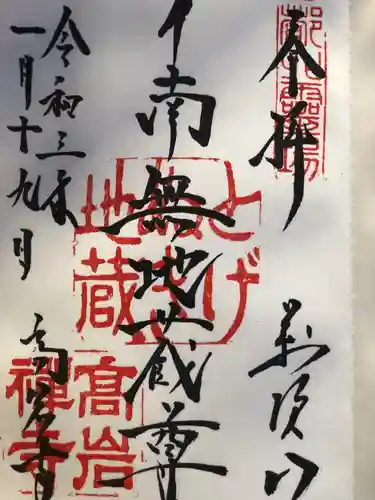 奉拝
南無地蔵尊
令和三年
一月十九日
高岩寺
とげぬき
地蔵
高岩
禅寺